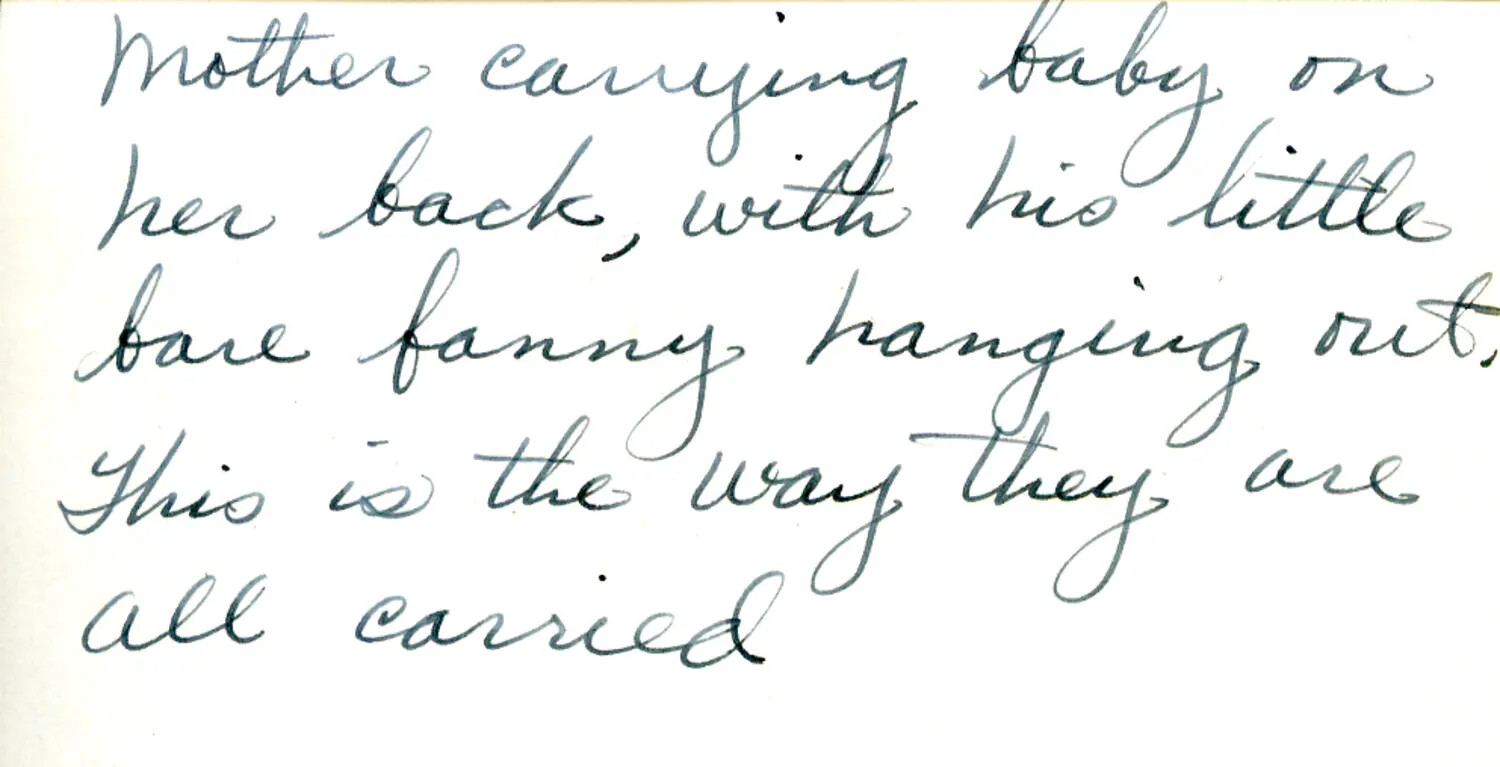 Mother carrying baby on
her back, with his little
bare fanny hanging out.
This is the way they are
all carried